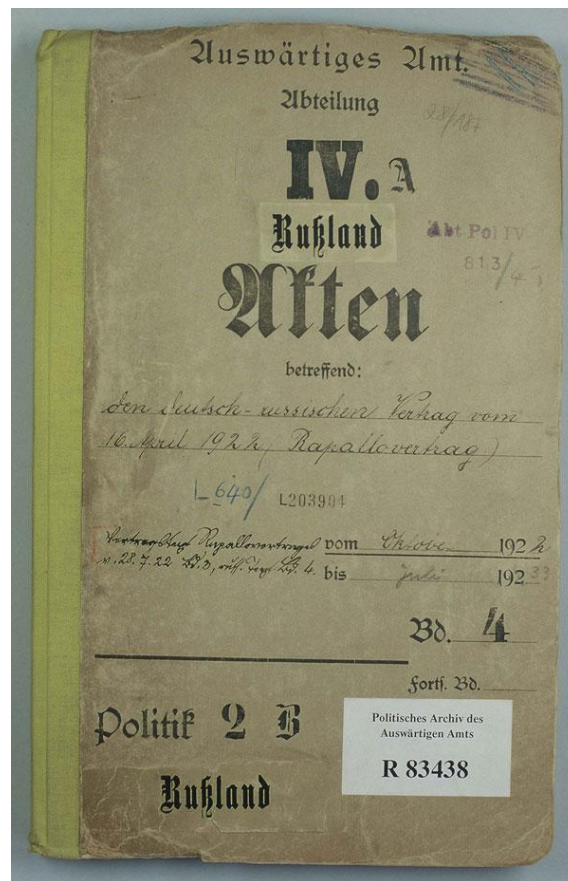 Auswärtiges Amt.
Abteilung
28/187
IV. A
Rußland
Abt Pol IV
813/4
Akten
betreffend:
den deutsch-russischen Vertrag vom
16. April 1922 (Rapallovertrag)
L 640/ L203904
Rapallovertrages vom Oktober 1922
v. 28.7.22 Bd. 3, Bd. 4. bis Juli 1933
Bd. 4
Fortf. Bd.
Politik 2 B
Rußland
Politisches Archiv des
Auswärtigen Amts
R 83438